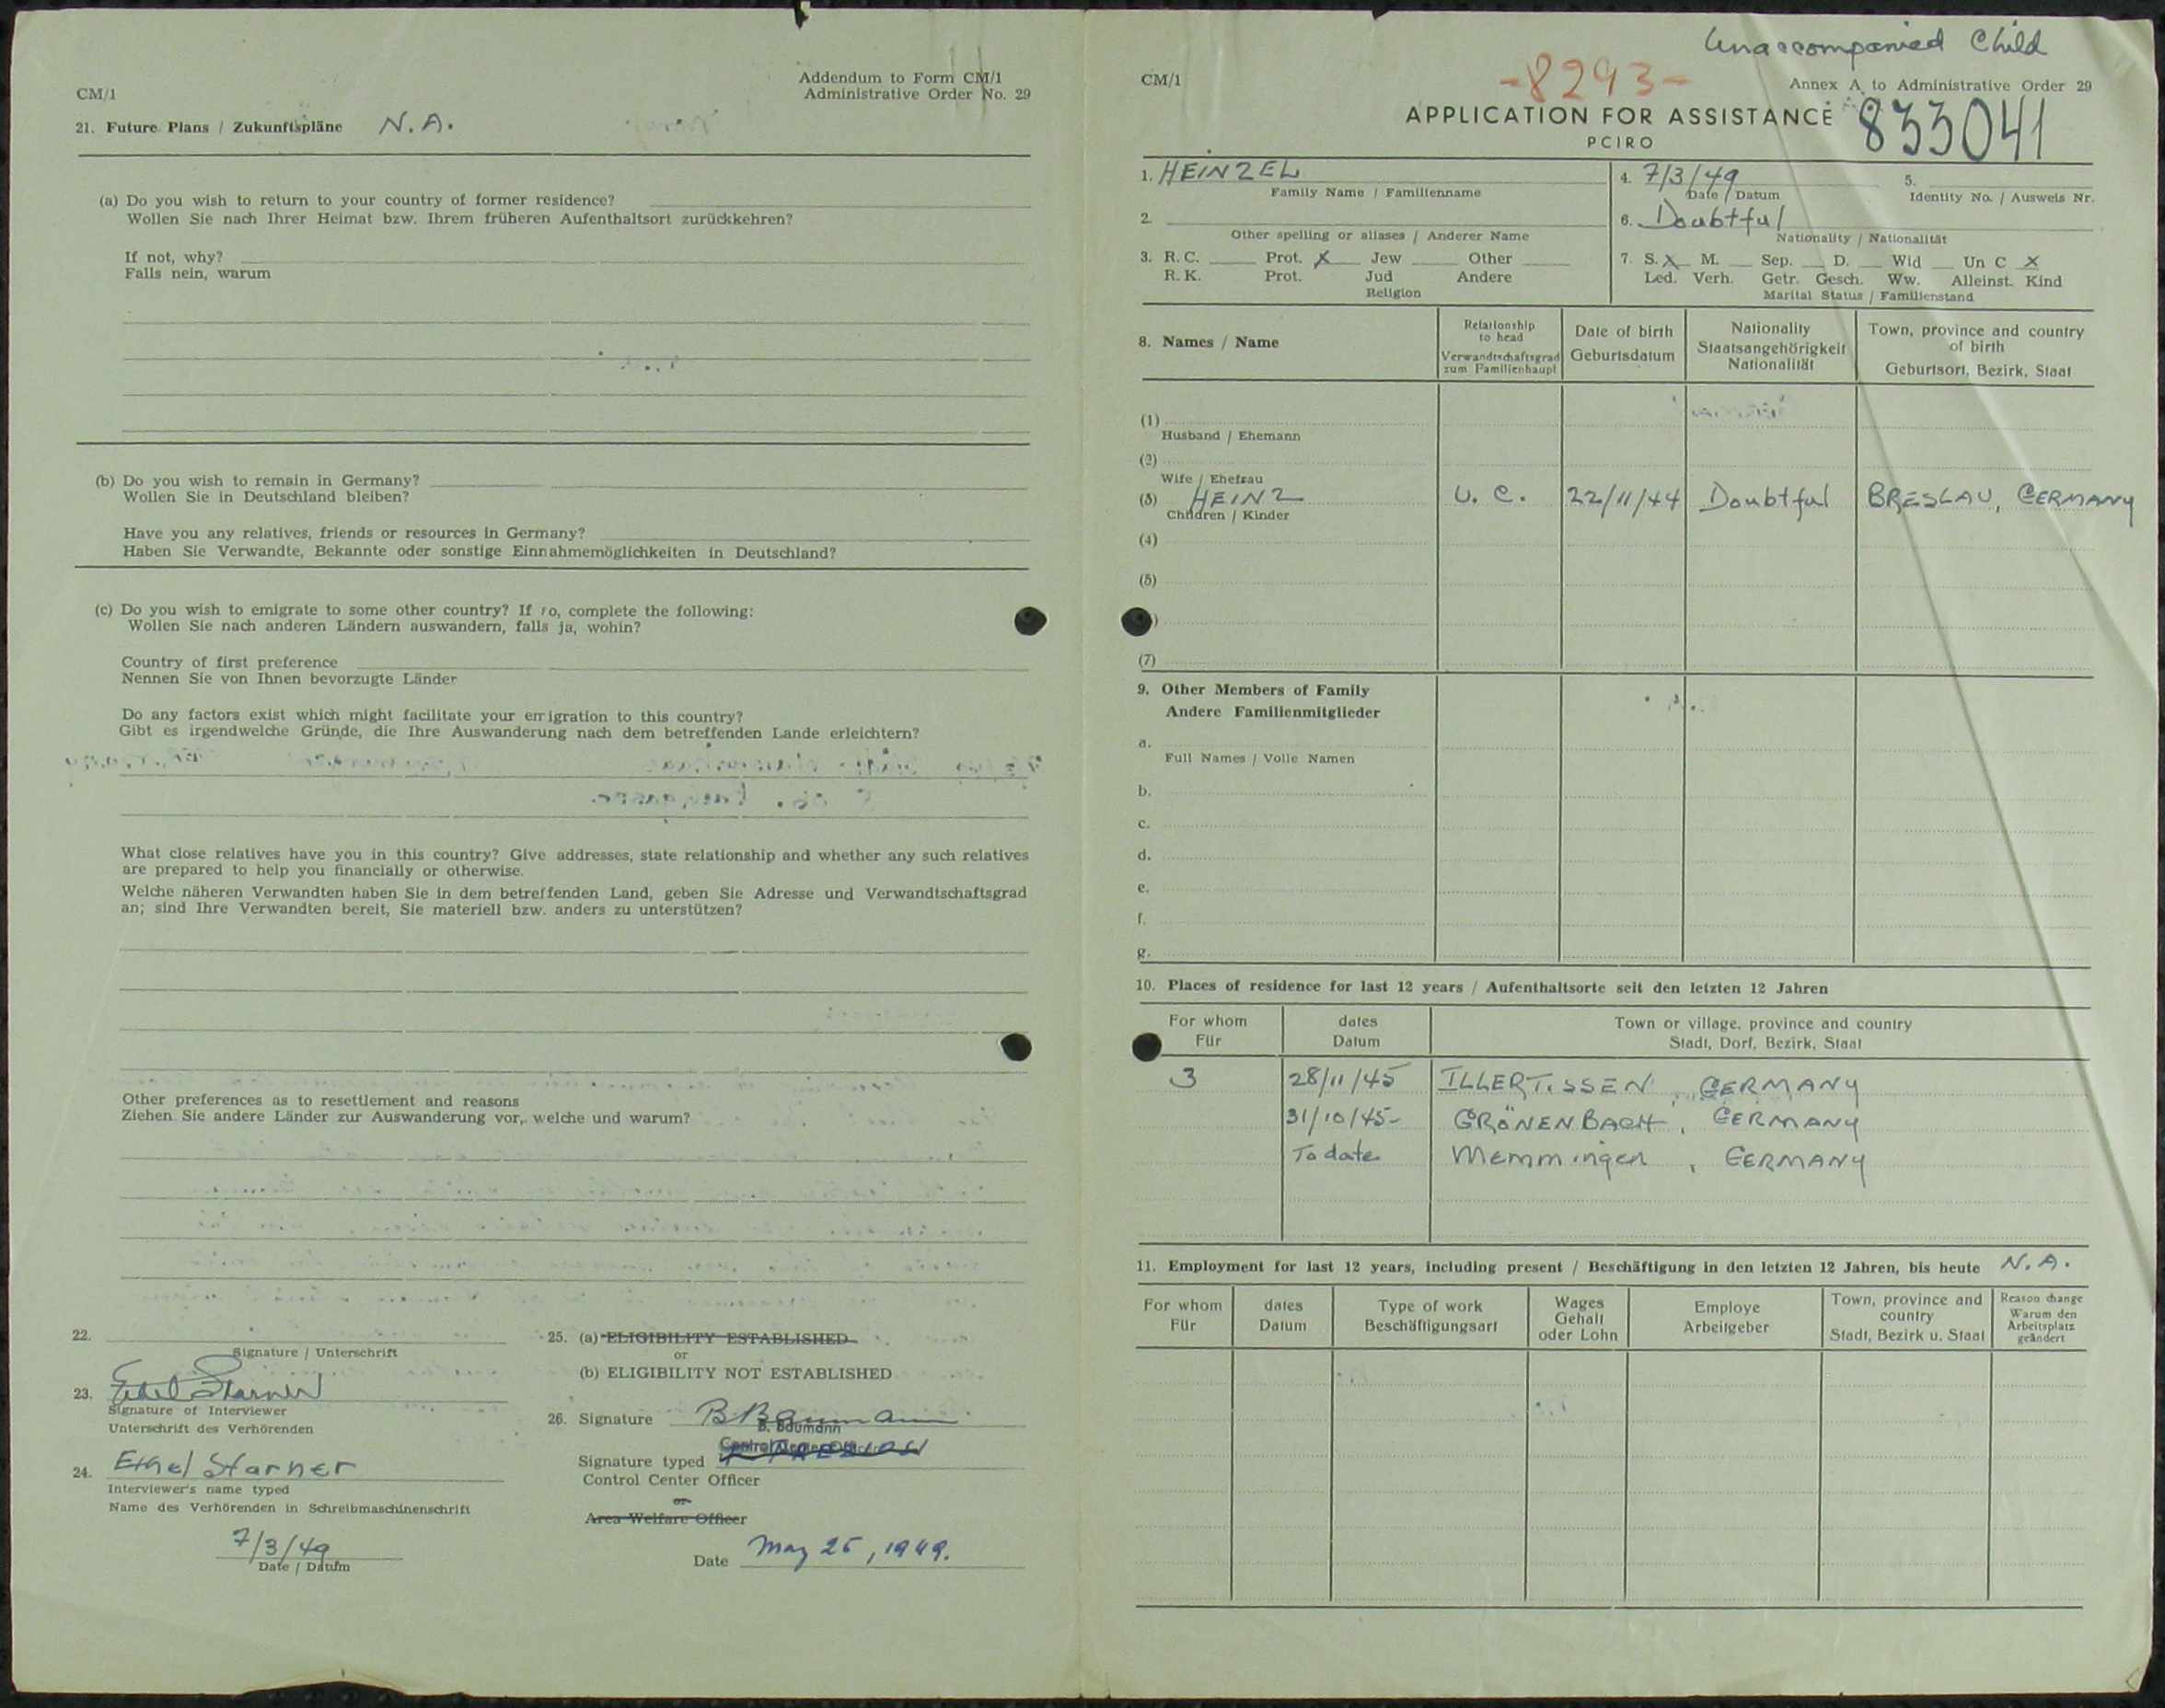 CM/1
Addendum to Form CM/1
Administrative Order No. 29
21. Future Plans / Zukunftspläne N.A.
(a) Do you wish to return to your country of former residence?
Wollen Sie nach Ihrer Heimat bzw. Ihrem früheren Aufenthaltsort zurückkehren?
If not, why?
Falls nein, warum
(b) Do you wish to remain in Germany?
Wollen Sie in Deutschland bleiben?
Have you any relatives, friends or resources in Germany?
Haben Sie Verwandte, Bekannte oder sonstige Einnahmemöglichkeiten in Deutschland?
(c) Do you wish to emigrate to some other country? If so, complete the following:
Wollen Sie nach anderen Ländern auswandern, falls ja, wohin?
Country of first preference
Nennen Sie von Ihnen bevorzugte Länder
Do any factors exist which might facilitate your emigration to this country?
Gibt es irgendwelche Gründe, die Ihre Auswanderung nach dem betreffenden Lande erleichtern?
What close relatives have you in this country? Give addresses, state relationship and whether any such relatives
are prepared to help you financially or otherwise.
Welche näheren Verwandten haben Sie in dem betreffenden Land, geben Sie Adresse und Verwandtschaftsgrad
an; sind Ihre Verwandten bereit, Sie materiell bzw. anders zu unterstützen?
Other preferences as to resettlement and reasons
Ziehen Sie andere Länder zur Auswanderung vor, welche und warum?
22.
Signature / Unterschrift
23. Ethel Starner
Signature of Interviewer
Unterschrift des Verhörenden
24. Ethel Starner
Interviewer's name typed
Name des Verhörenden in Schreibmaschinenschrift
7/3/49
Date / Datum
25. (a) ELIGIBILITY ESTABLISHED
or
(b) ELIGIBILITY NOT ESTABLISHED
26. Signature B Baumann
B. Baumann
Control Center Officer
Signature typed
Control Center Officer
or
Area Welfare Officer
Date May 25, 1949.
Unaccompanied Child
CM/1
-8293-
Annex A to Administrative Order 29
APPLICATION FOR ASSISTANCE
833041
PCIRO
1. HEINZEL
Family Name / Familienname
4. 7/3/49
Date / Datum
5.
Identity No. / Ausweis Nr.
2.
Other spelling or aliases / Anderer Name
6. Doubtful
Nationality / Nationalität
3. R.C. Prot. X Jew Other
R.K. Prot. Jud Andere
Religion
7. S. X M. Sep. D. Wid Un C X
Led. Verh. Getr. Gesch. Ww. Alleinst. Kind
Marital Status / Familienstand
8. Names / Name
Relationship to head
Verwandtschaftsgrad zum Familienhaupt
Date of birth
Geburtsdatum
Nationality
Staatsangehörigkeit
Nationalität
Town, province and country of birth
Geburtsort, Bezirk, Staat
(1)
Husband / Ehemann
(2)
Wife / Ehefrau
(3) HEINZ U. C. 22/11/44 Doubtful BRESLAU, GERMANY
Children / Kinder
(4)
(5)
)
(7)
9. Other Members of Family
Andere Familienmitglieder
a.
Full Names / Volle Namen
b.
c.
d.
e.
f.
g.
10. Places of residence for last 12 years / Aufenthaltsorte seit den letzten 12 Jahren
For whom
Für
dates
Datum
Town or village, province and country
Stadt, Dorf, Bezirk, Staat
3 28/11/45 ILLERTISSEN, GERMANY
31/10/45- GRÖNENBACH, GERMANY
To date Memmingen, GERMANY
11. Employment for last 12 years, including present / Beschäftigung in den letzten 12 Jahren, bis heute N.A.
For whom
Für
dates
Datum
Type of work
Beschäftigungsart
Wages
Gehalt
oder Lohn
Employe
Arbeitgeber
Town, province and country
Stadt, Bezirk u. Staat
Reason change
Warum den Arbeitsplatz geändert